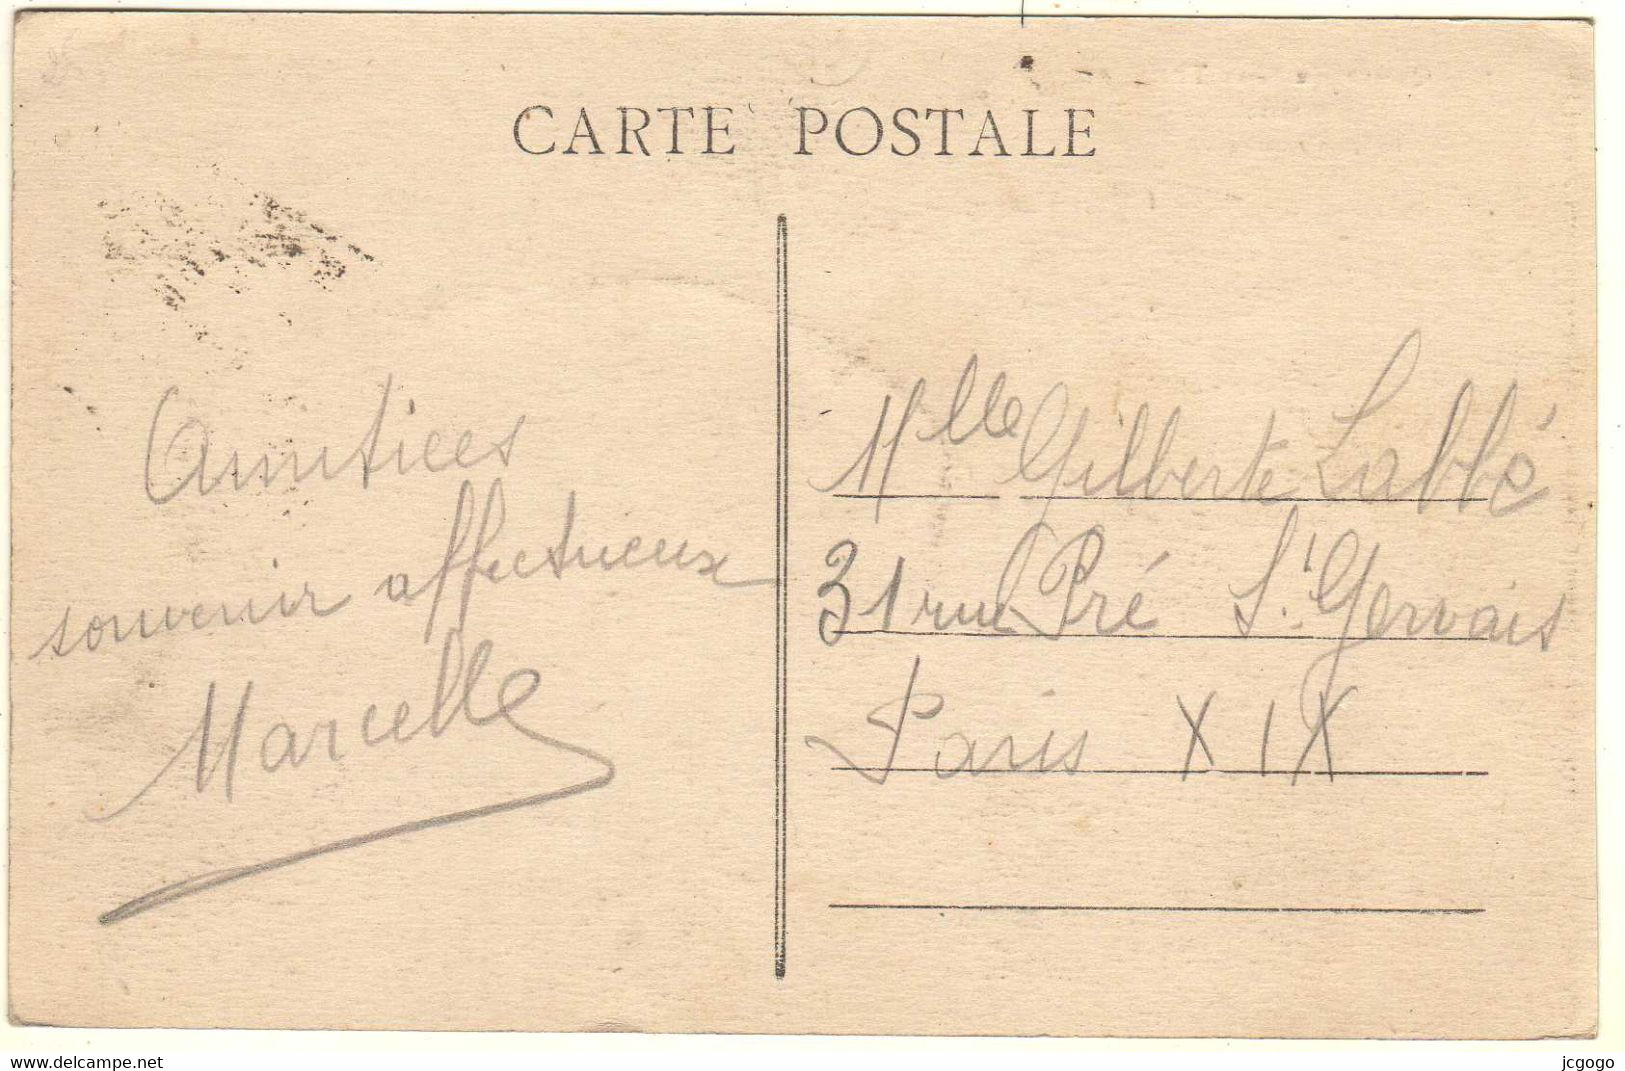 CARTE POSTALE
Amitiées
souvenir affectueux
Marcelle
Mlle Gilberte Labbé
31 rue Pré St. Gervais
Paris XIX
www.delcampe.net
jcgogo